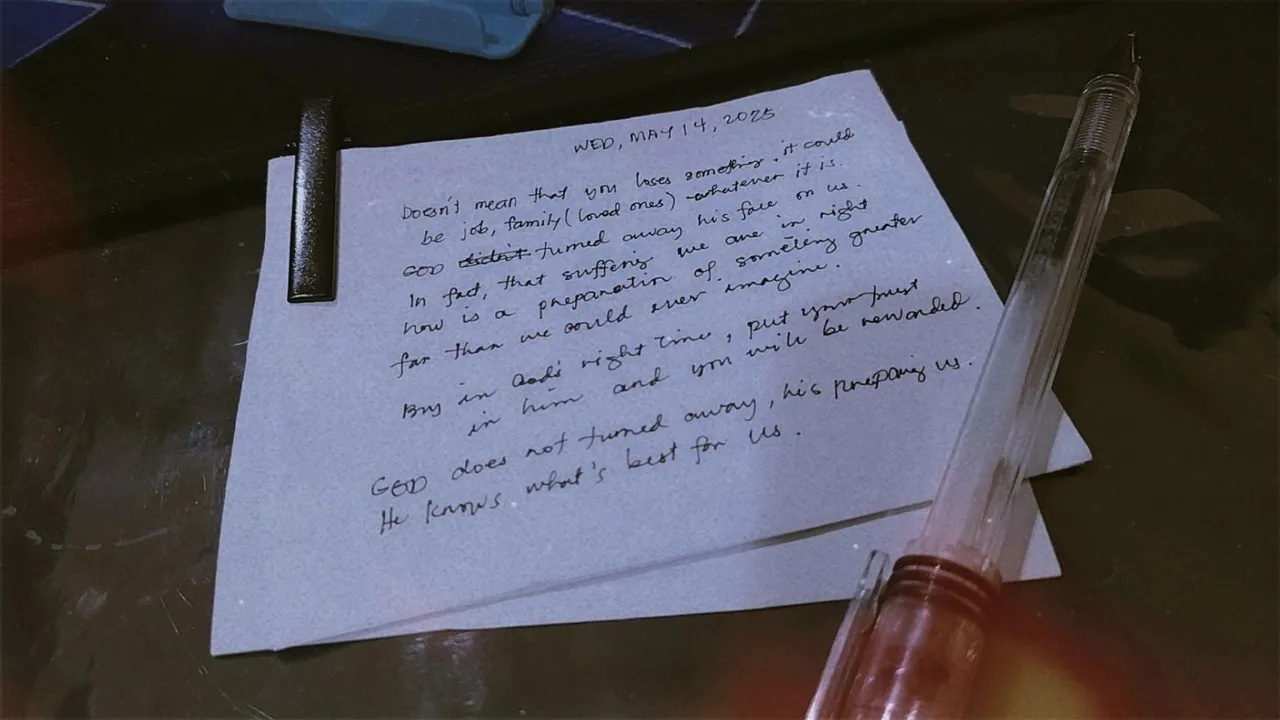 WED, MAY 14, 2025
Doesn't mean that you loses something, it could
be job, family (loved ones) whatever it is.
GOD didn't turned away his face on us.
In fact, that suffering we are in right
now is a preparation of something greater
far than we could ever imagine.
in God's right time, put your trust
in him and you will be rewarded.
GOD does not turned away, his preparing us.
He knows what's best for us.